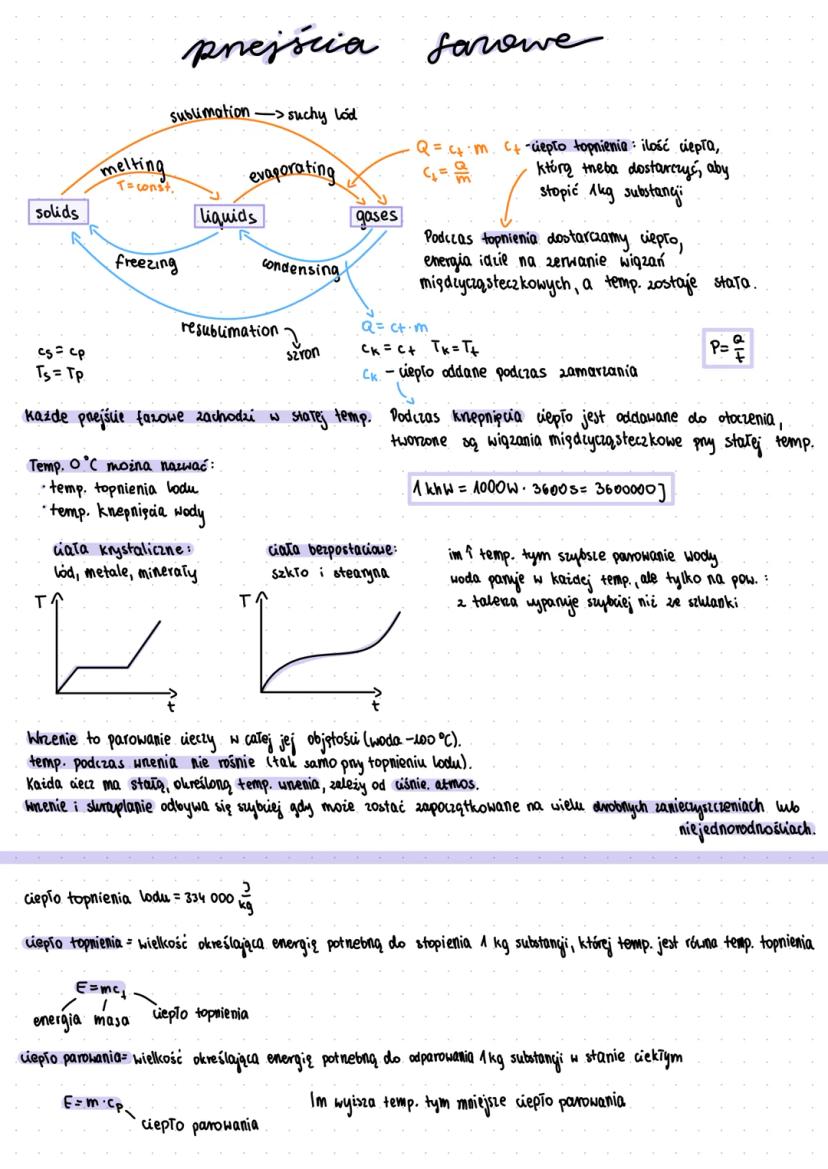 przejścia fazowe
sublimation → suchy lód
melting
T = const.
evaporating
solids
liquids
gases
freezing
condensing
resublimation
szron
Q = ct · m
ct = Q/m
ct - ciepło topnienia : ilość ciepła,
którą trzeba dostarczyć, aby
stopić 1kg substancji
Podczas topnienia dostarczamy ciepło,
energia idzie na zerwanie wiązań
międzycząsteczkowych, a temp. zostaje stała.
Q = ct · m
ck = ct Tk = Tt
ck - ciepło oddane podczas zamarzania
P = Q/t
cs = cp
Ts = Tp
Każde przejście fazowe zachodzi w stałej temp.
Podczas krzepnięcia ciepło jest oddawane do otoczenia,
tworzone są wiązania międzycząsteczkowe przy stałej temp.
Temp. 0°C można nazwać:
· temp. topnienia lodu
· temp. krzepnięcia wody
1 khW = 1000W · 3600s = 3600000J
ciała krystaliczne:
lód, metale, minerały
T
t
ciała bezpostaciowe:
szkło i stearyna
T
t
im ↑ temp. tym szybsze parowanie wody
woda paruje w każdej temp., ale tylko na pow. :
z talerza wyparuje szybciej niż ze szklanki
Wrzenie to parowanie cieczy w całej jej objętości (woda -100°C).
temp. podczas wrzenia nie rośnie (tak samo przy topnieniu lodu).
Każda ciecz ma stałą, określoną temp. wrzenia, zależy od ciśnie. atmos.
Wrzenie i skraplanie odbywa się szybciej gdy może zostać zapoczątkowane na wielu drobnych zanieczyszczeniach lub
niejednorodnościach.
ciepło topnienia lodu = 334 000 J/kg
ciepło topnienia = wielkość określająca energię potrzebną do stopienia 1 kg substancji, której temp. jest równa temp. topnienia
E = mct
energia masa ciepło topnienia
ciepło parowania = wielkość określająca energię potrzebną do odparowania 1kg substancji w stanie ciekłym
E = m · cp
ciepło parowania
Im wyższa temp. tym mniejsze ciepło parowania